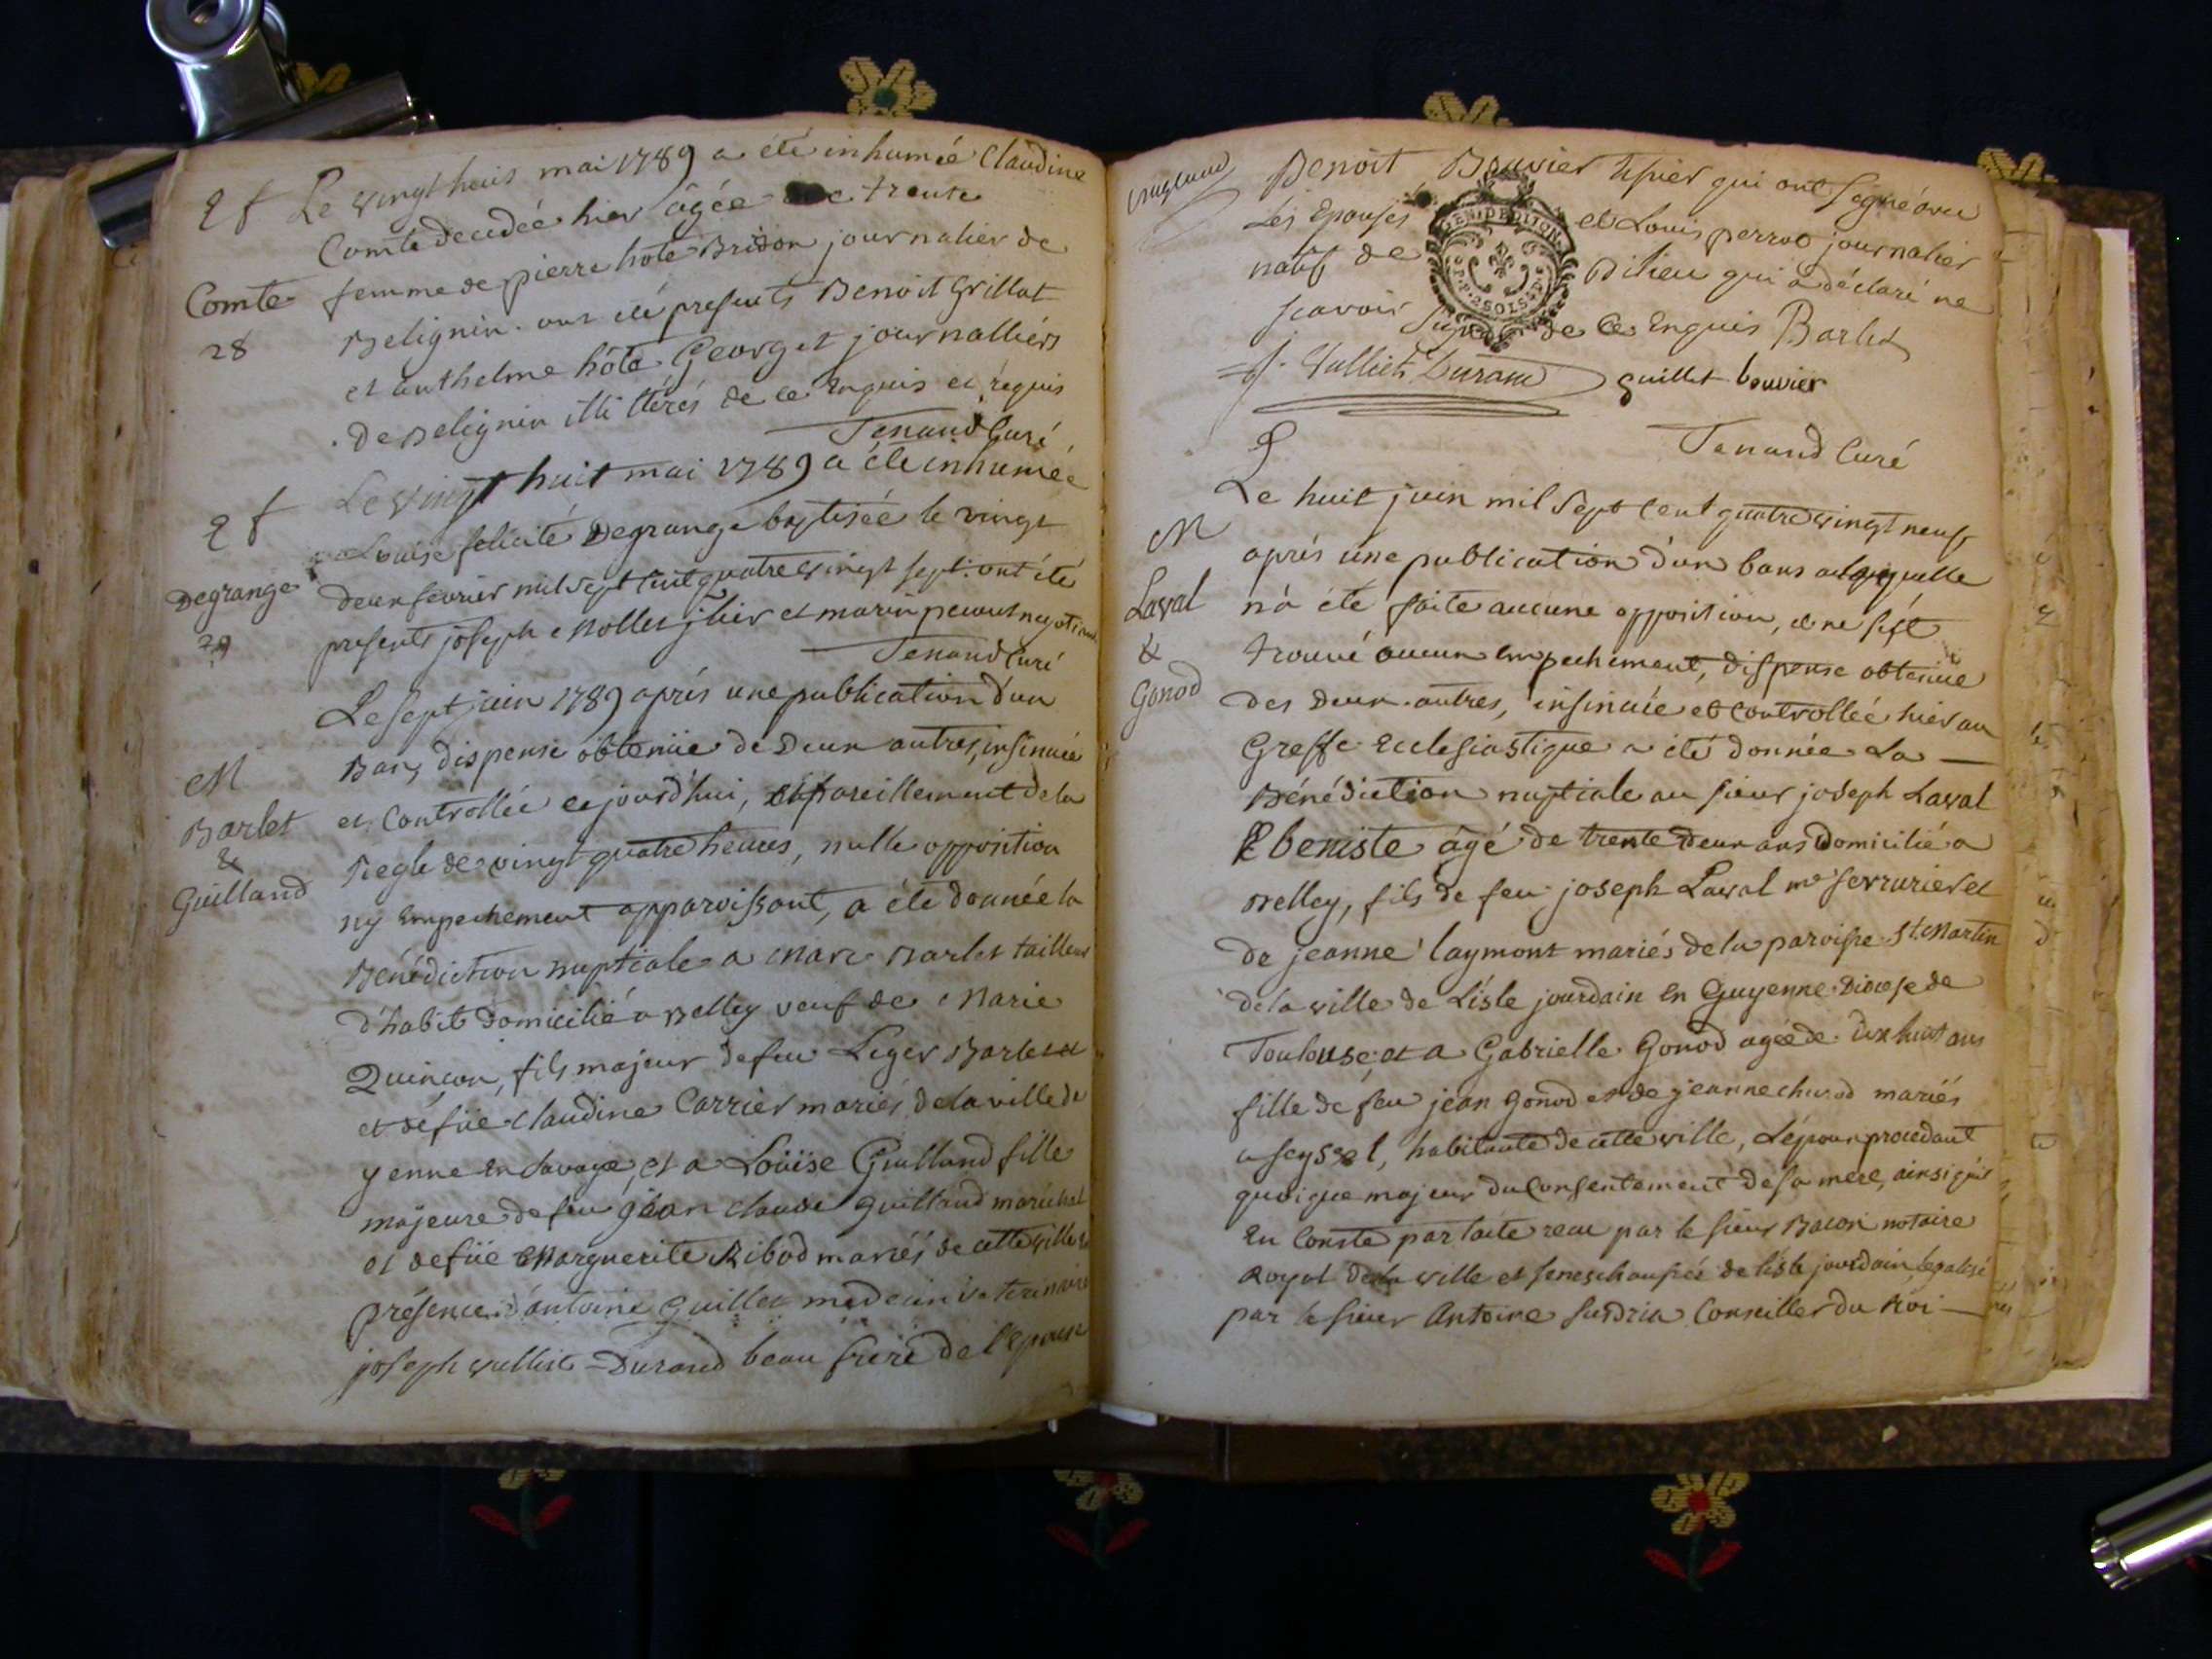 Le vingt huit mai 1789 a été inhumée Claudine
Comte decedée hier âgée de trente
Comte
28
femme de pierre hote Bridon journalier de
Belignin. ont été presents Benoit Grillot
et anthelme hôte Georget journalliers
de Belignin illitérés de ce Enquis et requis
Tenand Curé
Le vingt huit mai 1789 a été inhumée
Louise felicité Degrange baptisée le vingt
Degrange
29
deux fevrier mil sept cent quatre vingt sept. ont été
presents joseph Mollet et marin
Tenand Curé
Le sept juin 1789 après une publication d'un
M
Barlet
&
Guilland
Ban, dispense obtenüe de deux autres, insinuée
et Controllée cejourd'hui, et pareillement de la
Regle de vingt quatre heures, nulle opposition
ny Empechement apparoissant, a été donnée la
Bénédiction nuptiale a Marc Barlet tailleur
d'habit domicilié a Belley veuf de Marie
Quinçon, fils majeur de feu Leger Barlet et
et de füe Claudine Carrier mariés de la ville de
yenne en Savoye, et a Loüise Guilland fille
majeure de feu jean claude Guilland marechal
et de füe Marguerite Ribod mariés de cette ville
présence d'antoine Guillet medecin veterinaire
joseph vulliet-Durand beau frere de l'Epouse
Benoit Bouvier qui ont signé avec
Les Epouses et Louis perrod journalier
natif de Bilieu qui a déclaré ne
scavoir signer de ce Enquis Barlet
J. Vulliet Durand guillet bouvier
Tenand Curé
Le huit juin mil sept cent quatre vingt neuf
M
Laval
&
Gonod
après une publication d'un bans a laquelle
n'a été faite aucune opposition, et ne s'est
trouvé aucun empechement, dispense obtenue
des deux autres, insinuée et Controllée hier au
Greffe Ecclesiastique a été donnée la
Bénédiction nuptiale au sieur joseph Laval
Ebeniste âgé de trente deux ans Domicilié a
Belley, fils de feu joseph Laval me serrurier et
de jeanne laymont mariés de la paroisse St. Martin
de la ville de Lisle jourdain en Guyenne Diocese de
Toulouse, et a Gabrielle Gonod agée de dix huit ans
fille de feu jean Gonod et de jeanne mariés
a seyssel, habitante de cette ville, L'époux procedant
quoique majeur du Consentement de sa mere, ainsi qu'il
en Conste par l'acte recu par le sieur Bacon notaire
Royal de la ville et seneschaussée de lisle jourdain, legalisé
par le sieur Antoine Conseiller du Roi